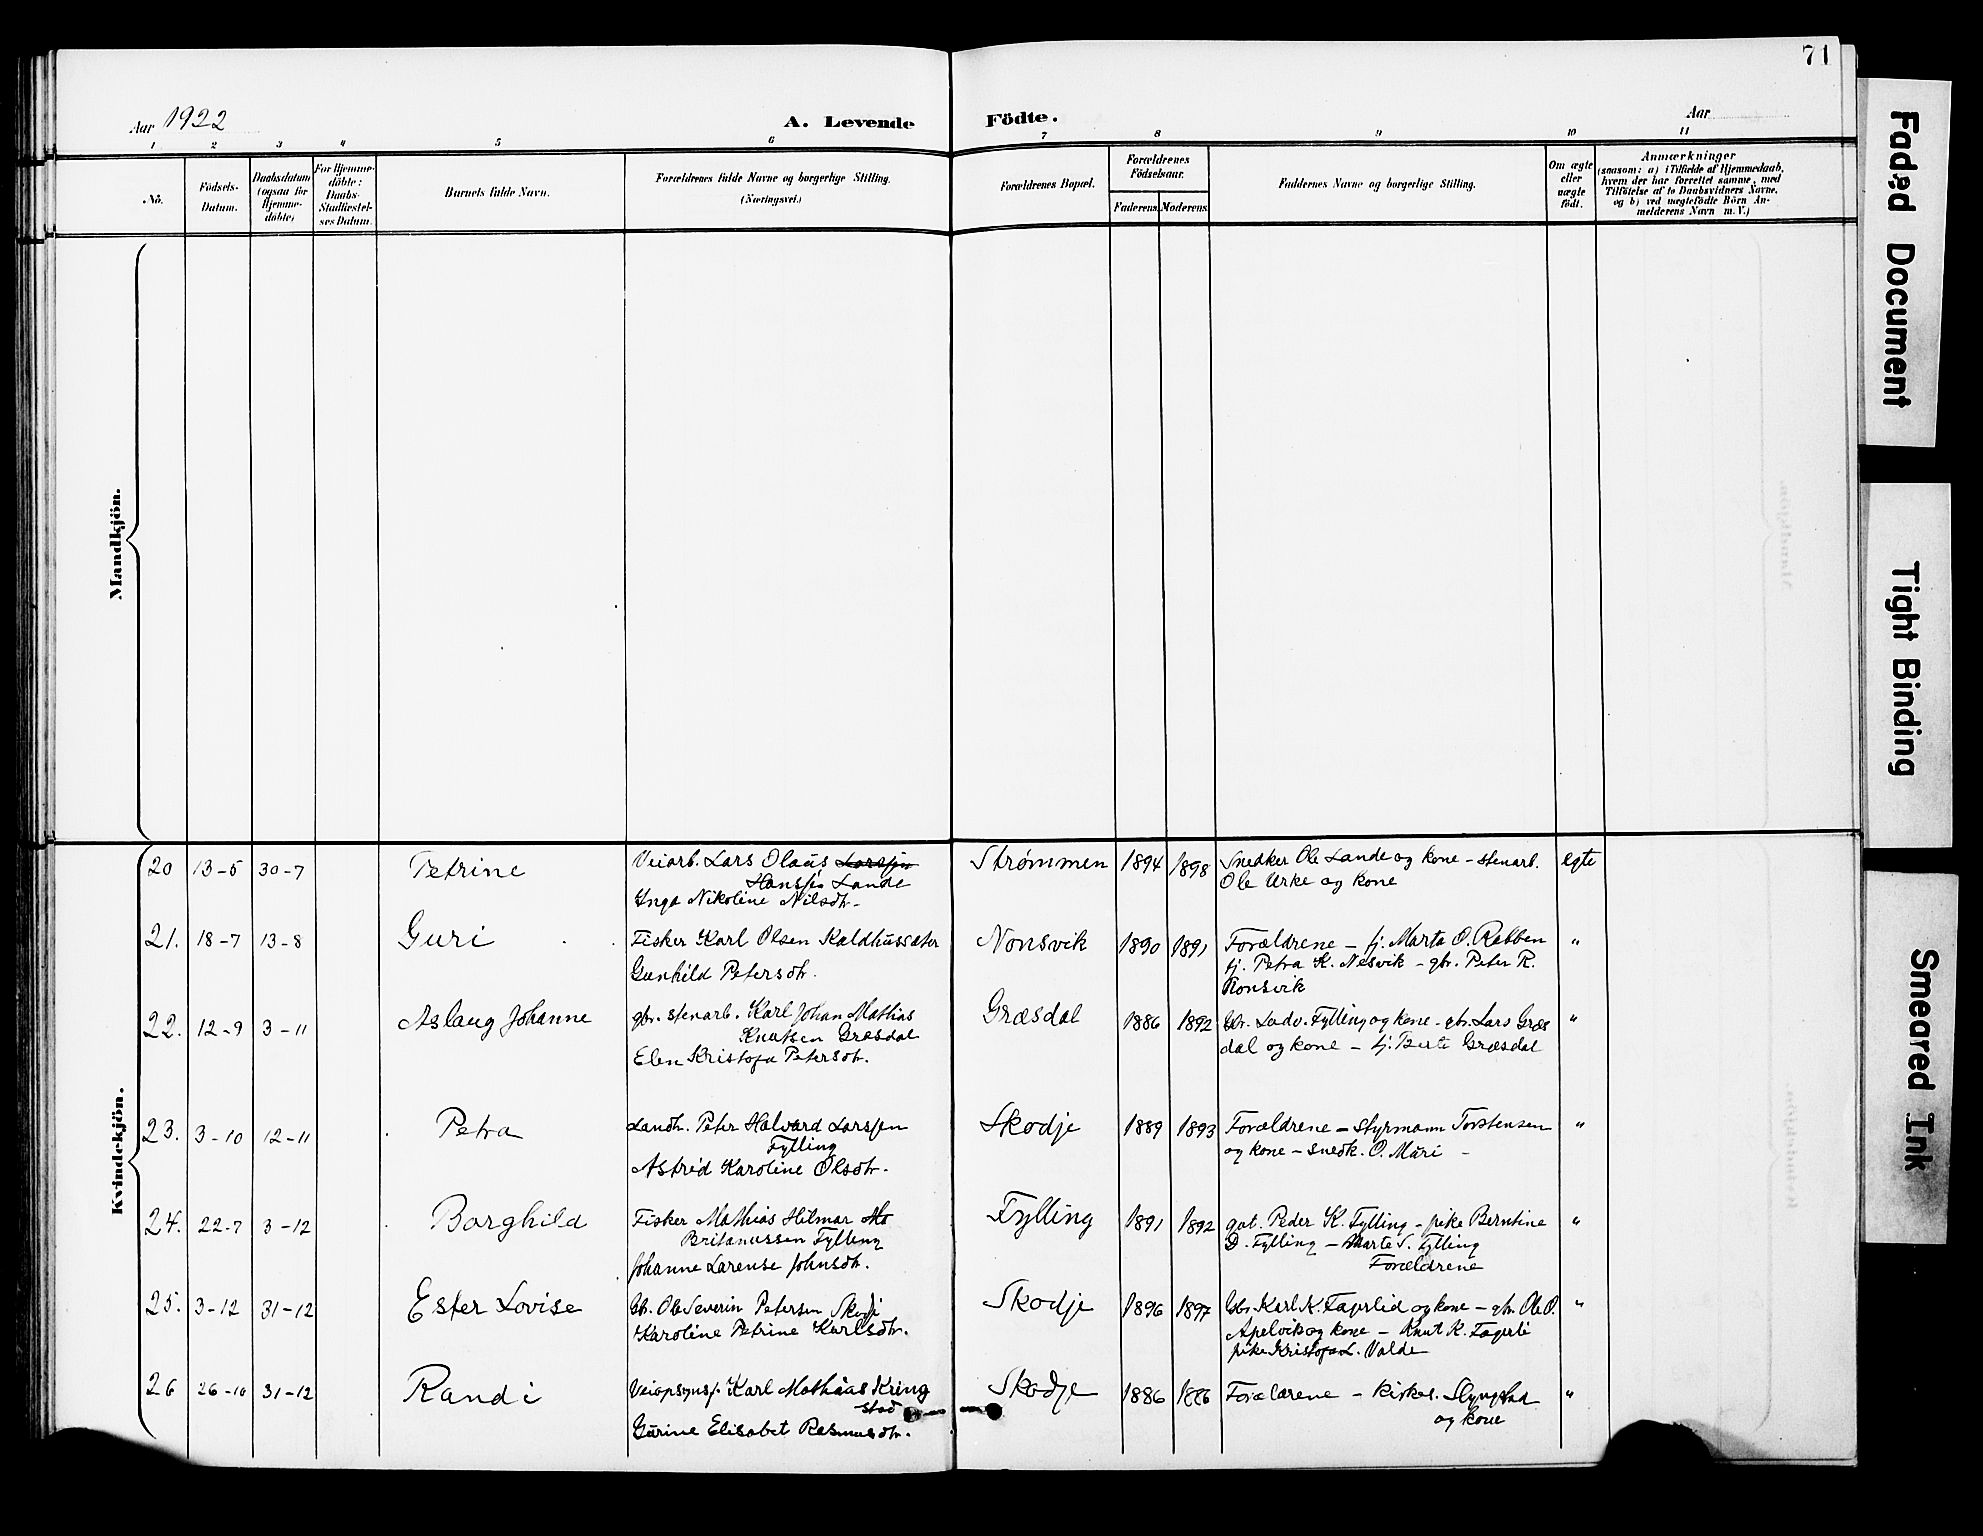 71
Aar 1922
A. Levende Födte.
Aar
1 2 3 4 5 6 7 8 9 10 11
No.
Födsels-Datum.
Daabsdatum (ogsaa for Hjemmedöbte)
For Hjemmedöbte: Daabs-Stadfæstelses Datum.
Barnets fulde Navn.
Forældrenes fulde Navne og borgerlige Stilling.
(Næringsvei.)
Forældrenes Bopæl.
Forældrenes Födselsaar.
Faderens. Moderens.
Faddernes Navne og borgerlige Stilling.
Om ægte eller uægte födt.
Anmærkninger
(saasom: a) i Tilfælde af Hjemmedaab,
hvem der har forrettet samme, med
Tilföielse af to Daabsvidners Navne,
og b) ved uægtefödte Börn An-
melderens Navn m. V.)
Mandkjön.
Kvindekjön.
20 13-5 30-7 Petrine
Veiarb. Lars Olaus Larssen
Hanssen Lande
Inga Nikoline Nilsdtr.
Strømmen 1894 1898
Snedker Ole Lande og kone - stenarb.
Ole Urke og kone
egte
21. 18-7 13-8 Guri
Fisker Karl Olsen Kaldhussæter
Gunhild Petersdtr.
Nonsvik 1890 1891
Forældrene - tj. Marta O. Rabben
tj. Petra K. Nesvik - gbr. Peter R.
Nonsvik
"
22. 12-9 3-11 Aslaug Johanne
gbr. stenarb. Karl Johan Mathias
Knutsen Græsdal
Elen Kristofa Petersdtr.
Græsdal 1886 1892
Gbr. Ludv. Fylling og kone - gbr. Lars Græs
dal og kone - tj. Berte Græsdal
"
23. 3-10 12-11 Petra
Landh. Peter Halvard Larssen
Fylling
Astrid Karoline Olsdtr.
Skodje 1889 1893
Forældrene - Styrmann Torstensen
og kone - snedk. O. Muri -
"
24. 22-7 3-12 Borghild
Fisker Mathias Hilmar
Britanussen Fylling
Johanne Larense Johnsdtr.
Fylling 1891 1892
gat. Peder K. Fylling - pike Berntine
D. Fylling - Marte S. Fylling
Forældrene
"
25. 3-12 31-12 Ester Lovise
Gb. Ole Severin Petersen Skodje
Karoline Petrine Karlsdtr.
Skodje 1896 1897
Gbr. Karl K. Fagerlid og kone - gbr. Ole O.
Apelvik og kone - Knut K. Fagerli
pike Kristofa L. Valde
"
26 26-10 31-12 Randi
Veiopsynsf. Karl Mathias Kring
stad
Gurine Elisabet Rasmusdtr.
Skodje 1886 1886
Forældrene - kirkes. Slyngstad
og kone
"
Faded Document
Tight Binding
Smeared Ink